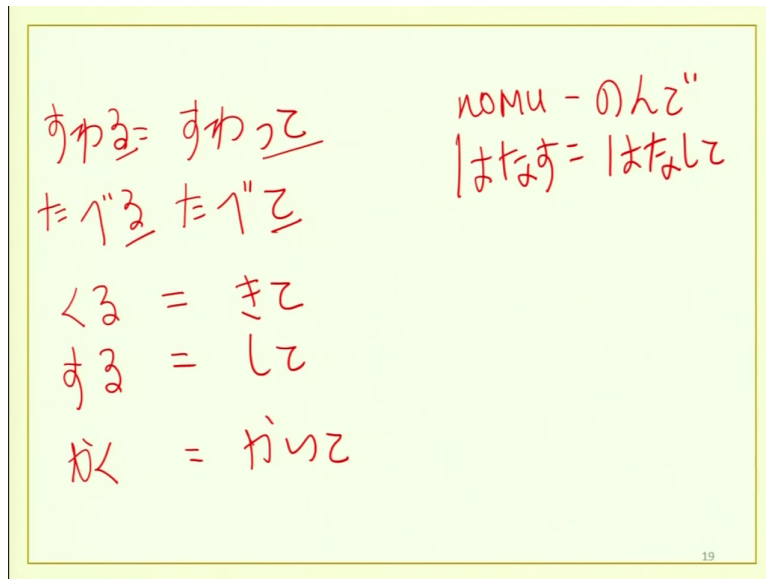 すわる= すわって
たべる たべて
くる = きて
する = して
かく = かいて
nomu - のんで
はなす= はなして
19